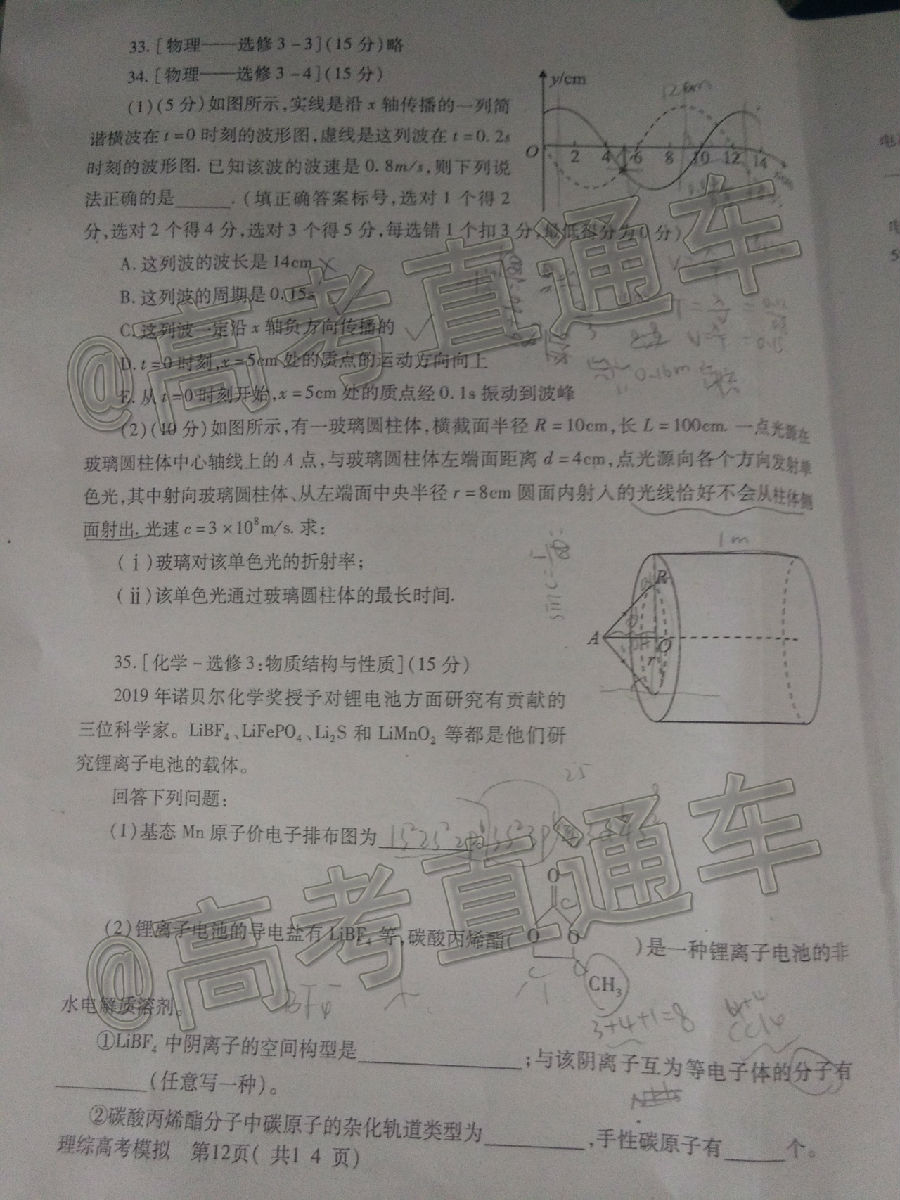 33.[物理——选修3-3](15分)略
34.[物理——选修3-4](15分)
(1)(5分)如图所示,实线是沿x轴传播的一列简
谐横波在t=0时刻的波形图,虚线是这列波在t=0.2s
时刻的波形图.已知该波的波速是0.8m/s,则下列说
法正确的是______.(填正确答案标号,选对1个得2
分,选对2个得4分,选对3个得5分,每选错1个扣3分,最低得分为0分)
y/cm
12cm
O 2 4 6 8 10 12 14
A.这列波的波长是14cm
B.这列波的周期是0.15s
C.这列波一定沿x轴负方向传播的
D.t=0时刻,x=5cm处的质点的运动方向向上
E.从t=0时刻开始,x=5cm处的质点经0.1s振动到波峰
0.16m
(2)(10分)如图所示,有一玻璃圆柱体,横截面半径R=10cm,长L=100cm.一点光源在
玻璃圆柱体中心轴线上的A点,与玻璃圆柱体左端面距离d=4cm,点光源向各个方向发射单
色光,其中射向玻璃圆柱体、从左端面中央半径r=8cm圆面内射入的光线恰好不会从柱体侧
面射出.光速c=3×10⁸m/s.求:
(ⅰ)玻璃对该单色光的折射率;
(ⅱ)该单色光通过玻璃圆柱体的最长时间.
1m
R
A
O
r
35.[化学-选修3:物质结构与性质](15分)
2019年诺贝尔化学奖授予对锂电池方面研究有贡献的
三位科学家。LiBF₄、LiFePO₄、Li₂S和LiMnO₂等都是他们研
究锂离子电池的载体。
回答下列问题:
25
(1)基态Mn原子价电子排布图为
(2)锂离子电池的导电盐有LiBF₄等,碳酸丙烯酯(
O
C
O O
CH₃
)是一种锂离子电池的非
水电解质溶剂。
BF₄⁻
3+4+1=8
CCl₄
①LiBF₄中阴离子的空间构型是____________;与该阴离子互为等电子体的分子有
________(任意写一种)。
②碳酸丙烯酯分子中碳原子的杂化轨道类型为________,手性碳原子有_____个。
理综高考模拟 第12页(共14页)
@高考直通车
@高考直通车